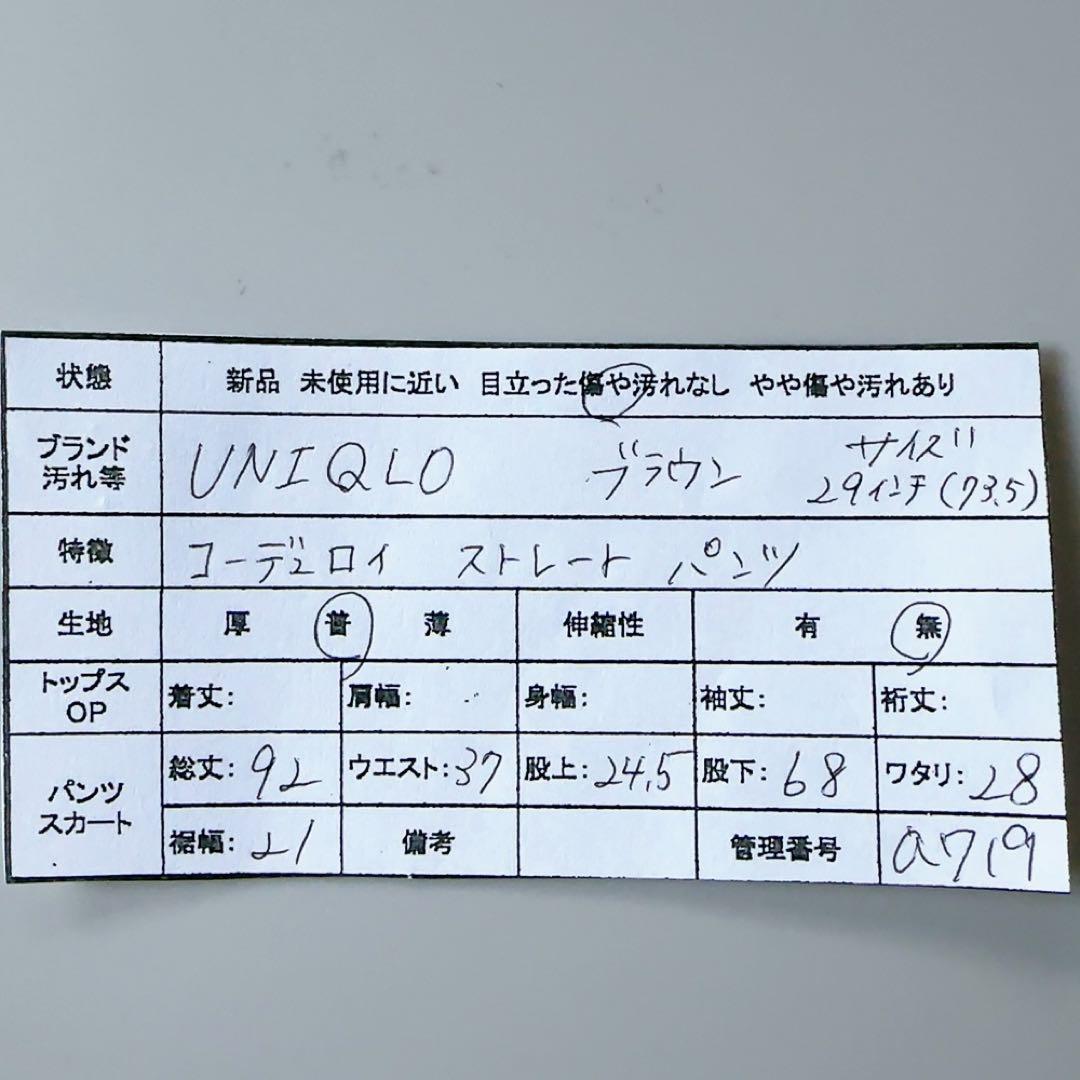 状態 新品 未使用に近い 目立った傷や汚れなし やや傷や汚れあり
ブランド
汚れ等
UNIQLO ブラウン サイズ
29インチ(73.5)
特徴 コーデュロイ ストレート パンツ
生地 厚 普 薄 伸縮性 有 無
トップス
OP
着丈: 肩幅: 身幅: 袖丈: 裄丈:
パンツ
スカート
総丈:92 ウエスト:37 股上:24.5 股下:68 ワタリ:28
裾幅:21 備考 管理番号 a719